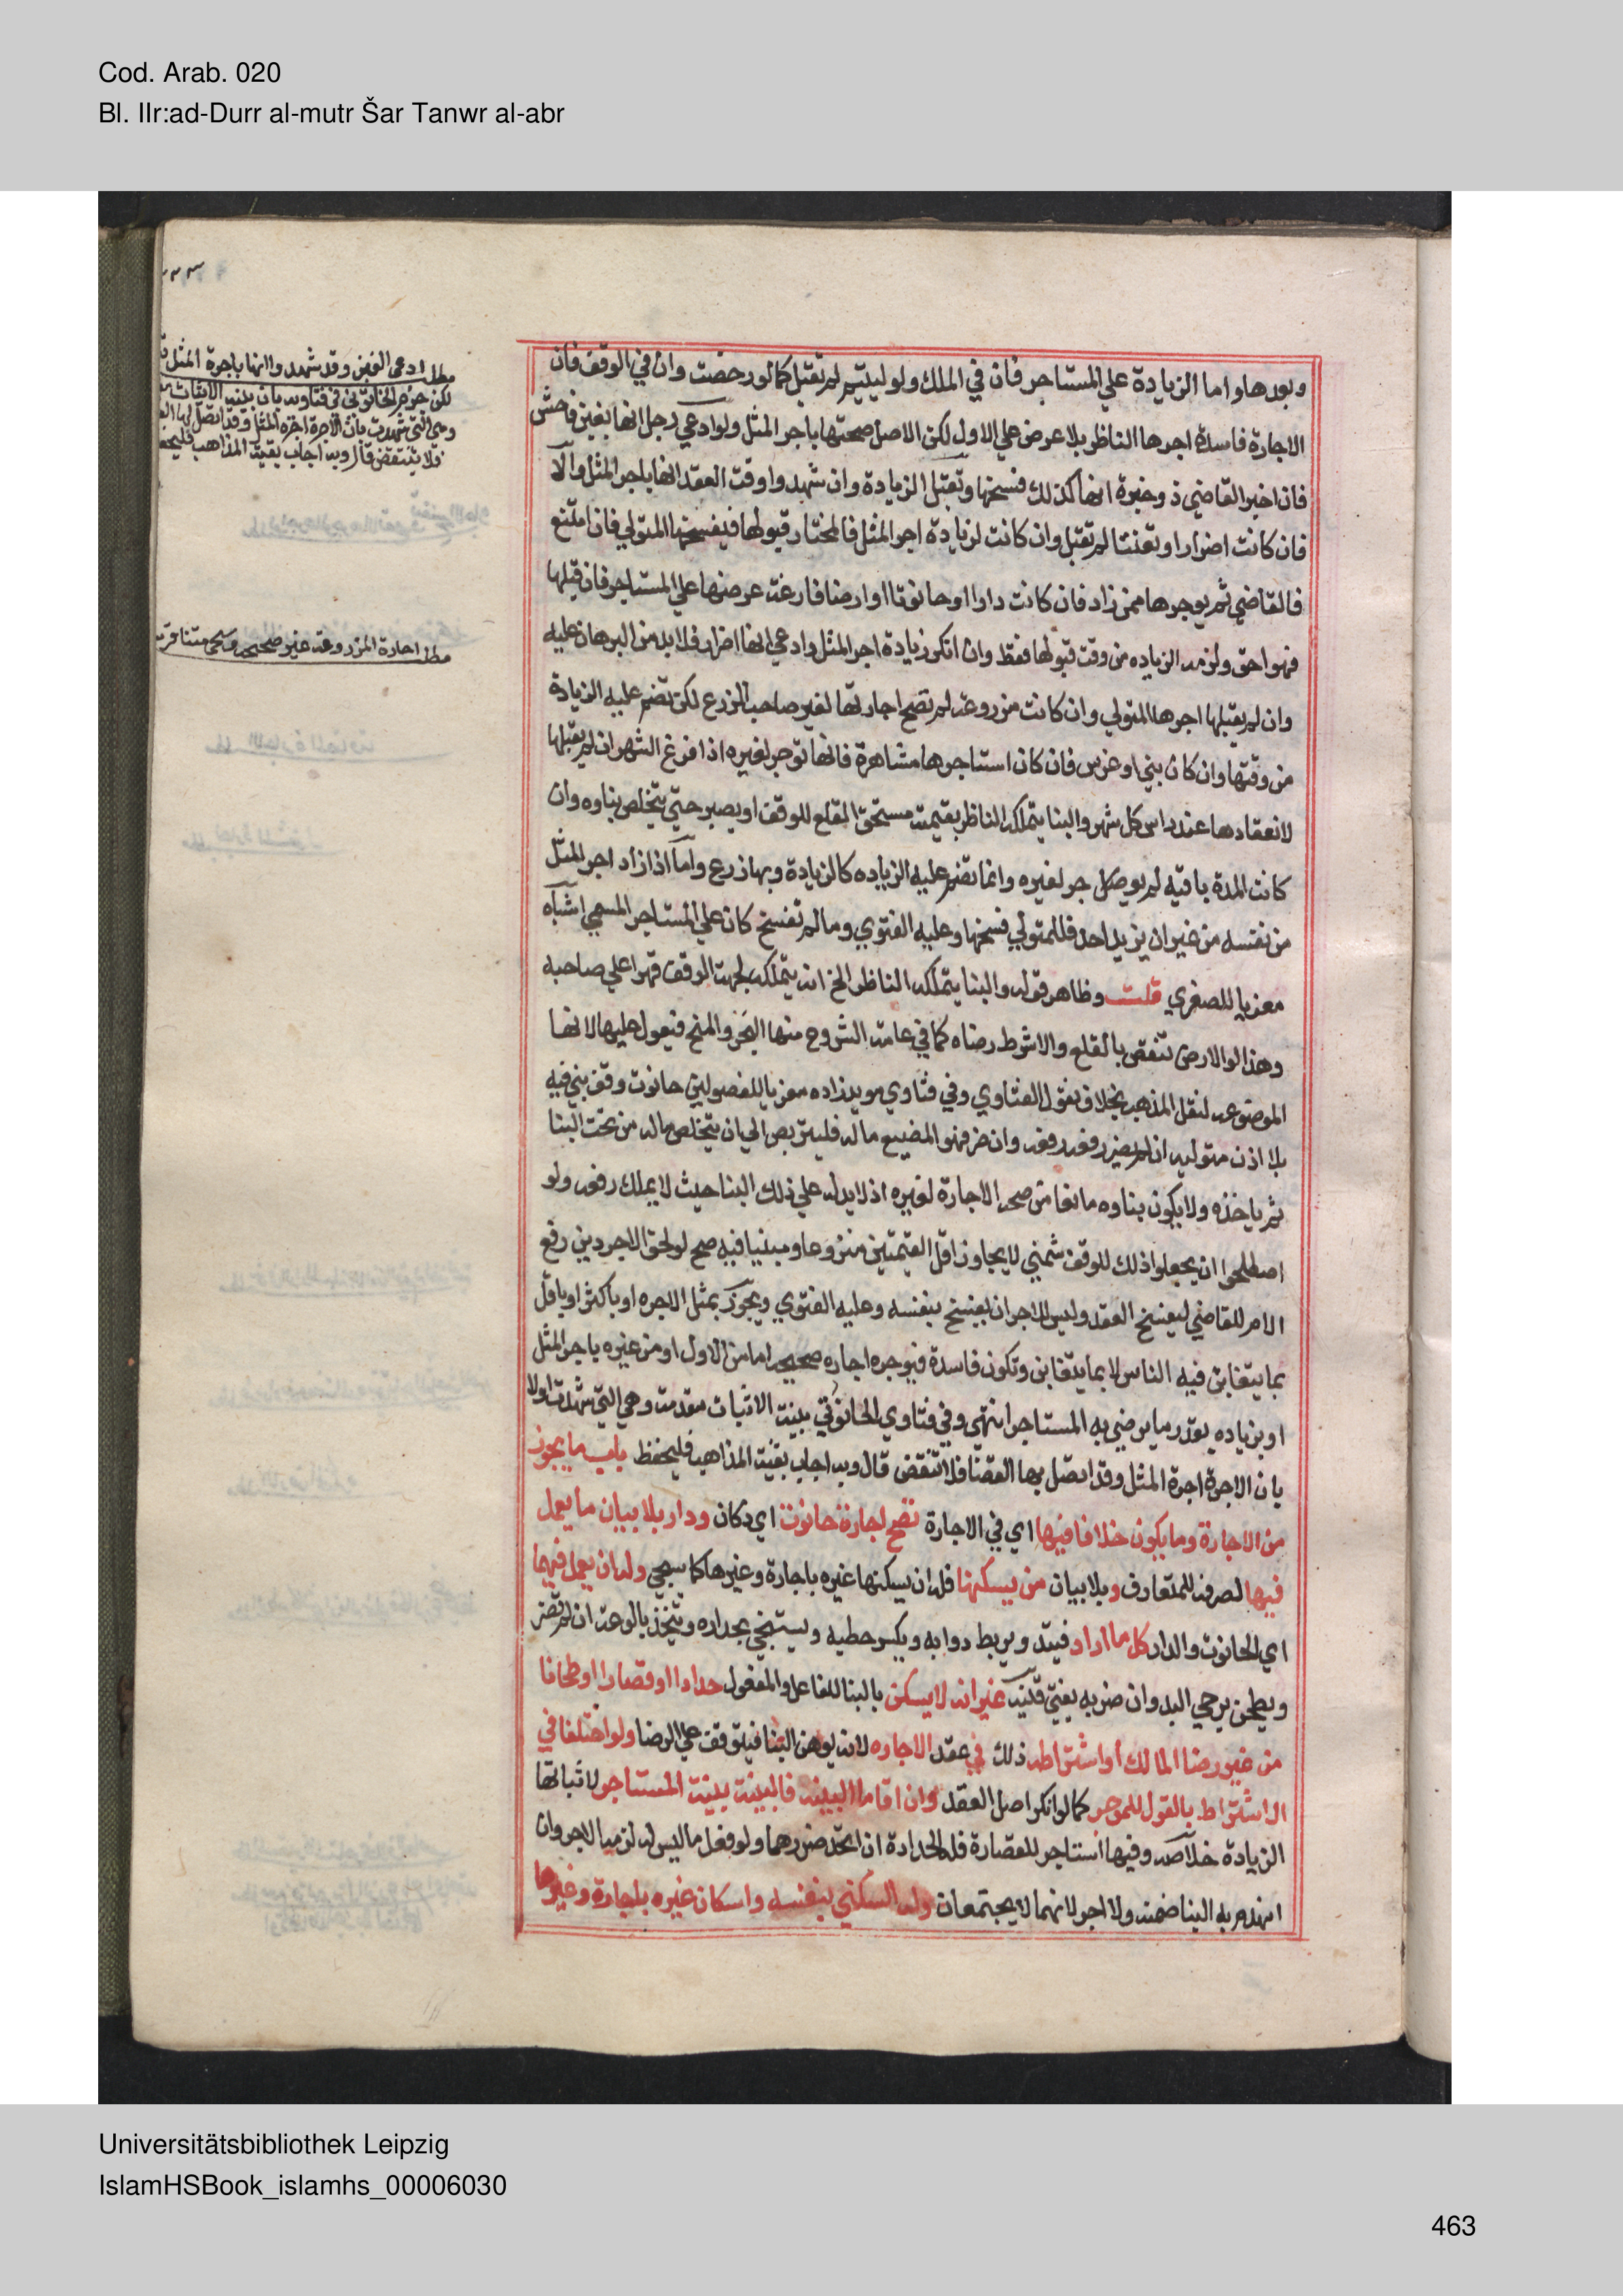 Cod. Arab. 020
Bl. IIr:ad-Durr al-mutr Šar Tanwr al-abr
مطل ادعى الغبن وقد شهدوا انها باجرة المثل
لكن جزم الحانوتى فى فتاويه بان بينه الاثبات
وهى التى شهدت بان الاجرة اجرة المثل وقد اتصل بها
فلا تنتقض قال وبه اجاب بقية المذاهب فليحفظ
مطل اجارة المزروعة غير صحيحه
وبعدها واما الزيادة علي المستاجر فان في الملك ولو ليتيم لم تقبل كما لو رخصت وان في الوقف فان
الاجارة فاسدة اجرها الناظر بلا عرض علي الاول لكن الاصل صحتها باجر المثل ولو ادعي رجل انها بغبن فاحش
فان اخبر القاضي ذو خبرة انها كذلك فسخها وتقبل الزيادة وان شهدوا وقت العقد انها باجر المثل والا
فان كانت اضرارا وتعنتا لم تقبل وان كانت لزيادة اجر المثل فالمختار قبولها فيفسخها المتولي فان امتنع
فالقاضي ثم يوجرها ممن زاد فان كانت دارا او حانوتا او ارضا فارغة عرضها علي المستاجر فان قبلها
فهو احق ولزمه الزياده من وقت قبولها فقط وان انكر زيادة اجر المثل وادعي انها اضرار فلا بد من البرهان عليه
وان لم يقبلها اجرها المتولي وان كانت مزروعة لم تصح اجارتها لغير صاحب الزرع لكن تضم عليه الزيادة
من وقتها وان كان بني او غرس فان كان استاجرها مشاهرة فانها توجر لغيره اذا فرغ الشهر ان لم يقبلها
لانعقادها عند راس كل شهر والبنا يتملكه الناظر بقيمته مستحق القلع للوقف او يصبر حتي يتخلص بناوه وان
كانت المدة باقيه لم يوجر لغيره وانما تضم عليه الزياده كالزيادة وبها زرع واما اذا زاد اجر المثل
من نفسه من غير ان يزيد احد فللمتولي فسخها وعليه الفتوي وما لم تفسخ كان علي المستاجر المسمي اشباه
معزيا للصغري قلت وظاهر قوله والبنا يتملكه الناظر الخ انه يتملكه لجهة الوقف قهرا علي صاحبه
وهذا لو الارض تنقص بالقلع والا شرط رضاه كما في عامة الشروح منها البحر والمنح فيعول عليها لانها
الموضوعه لنقل المذهب بخلاف نقول الفتاوي وفي فتاوي مويد زاده معزيا للفصولين حانوت وقف بني فيه
بلا اذن متوليه ان لم يضر رفعه رفعه وان ضر فهو المضيع ماله فليتربص الي ان يتخلص ماله من تحت البنا
ثم ياخذه ولا يكون بناوه مانعا من صحة الاجارة لغيره اذ لا يد له علي ذلك البنا حيث لا يملك رفعه ولو
اصطلحوا ان يجعلوا ذلك للوقف بثمن لا يجاوز اقل القيمتين منزوعا ومبنيا فيه صح لو لحق الاجر دين رفع
الامر للقاضي ليفسخ العقد وليس للاجر ان يفسخ بنفسه وعليه الفتوي ويجوز بمثل الاجره او باكثر او باقل
بما يتغابن فيه الناس لا بما يتغابن وتكون فاسدة فيوجره اجاره صحيحه اما من الاول او من غيره باجر المثل
او بزياده بقدر ما يرضي به المستاجر انتهي وفي فتاوي الحانوتي بينة الاثبات مقدمة وهي التي شهدت اولا
بان الاجرة اجرة المثل وقد اتصل بها القضا فلا تنقض قال وبه اجاب بقية المذاهب فليحفظ باب ما يجوز
من الاجارة وما يكون خلافا فيها اي في الاجارة تصح اجارة حانوت اي دكان ودار بلا بيان ما يعمل
فيها لصرفه للمتعارف وبلا بيان من يسكنها فله ان يسكنها غيره باجارة وغيرها كما سيجي وله ان يعمل فيهما
اي الحانوت والدار كل ما اراد فيتد ويربط دوابه ويكسر حطبه ويستنجي بجداره ويتخذ بالوعة ان لم تضر
ويطحن برحي اليد وان ضر به يفتي قنيه غير انه لا يسكن بالبنا للفاعل والمفعول حدادا او قصارا او طحانا
من غير رضا المالك او اشتراطه ذلك في عقد الاجاره لانه يوهن البنا فيتوقف علي الرضا ولو اختلفا في
الاشتراط بالقول للموجر كما لو انكر اصل العقد وان اقاما البينه فالبينة بينة المستاجر لاثباتها
الزيادة خلاصه وفيها استاجر للقصارة فله الحدادة ان اتحد ضررهما ولو فعل ما ليس له لزمه الاجر وان
انهدم به البنا ضمنه ولا اجر لانهما لا يجتمعان وله السكني بنفسه واسكان غيره باجارة وغيرها
Universitätsbibliothek Leipzig
IslamHSBook_islamhs_00006030
463